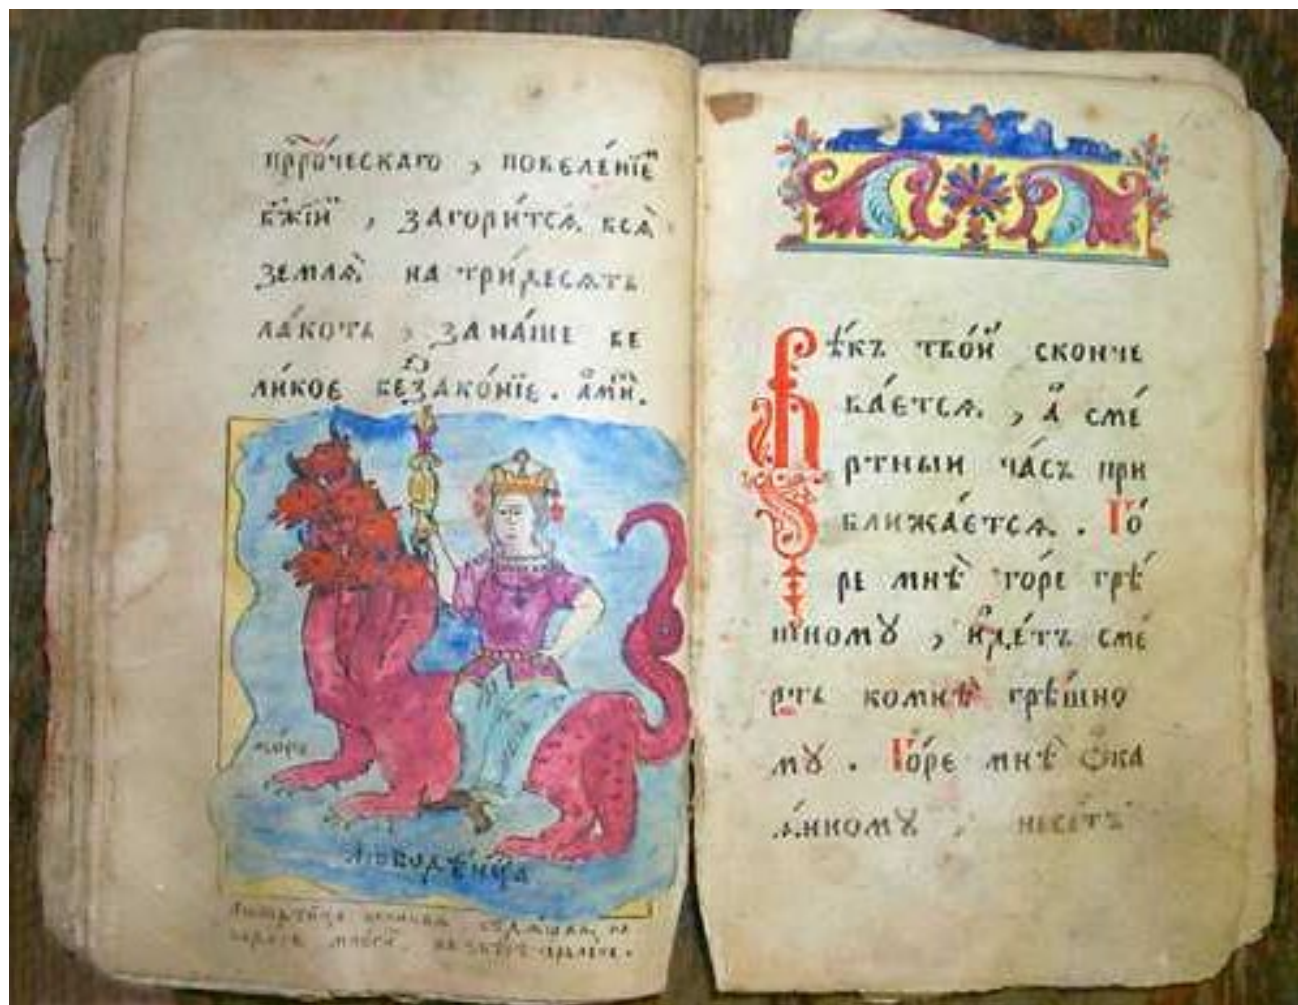 прⷪ҇ро́ческаго , повеле́нїеⷨ
бж҃їиⷨ , загори́тсѧ всѧ̀
землѧ̀ на три́десѧть
ла́котъ , за на́ше ве
ли́кое безⷥако́нїе . а҆ми́нь.
мо́ре
любодѣ́ица
Вѣ́къ тво́й сконче
ва́етсѧ , а҆ сме́
ртныи ча́съ при
ближа́етсѧ . Го́
ре мнѣ̀ го́ре грѣ́
шномꙋ , и҆де́тъ сме́
рть комнѣ̀ грѣ́шно
мꙋ . Го́ре мнѣ̀ ѻ҆ка
ѧ́нномꙋ , несе́тъ